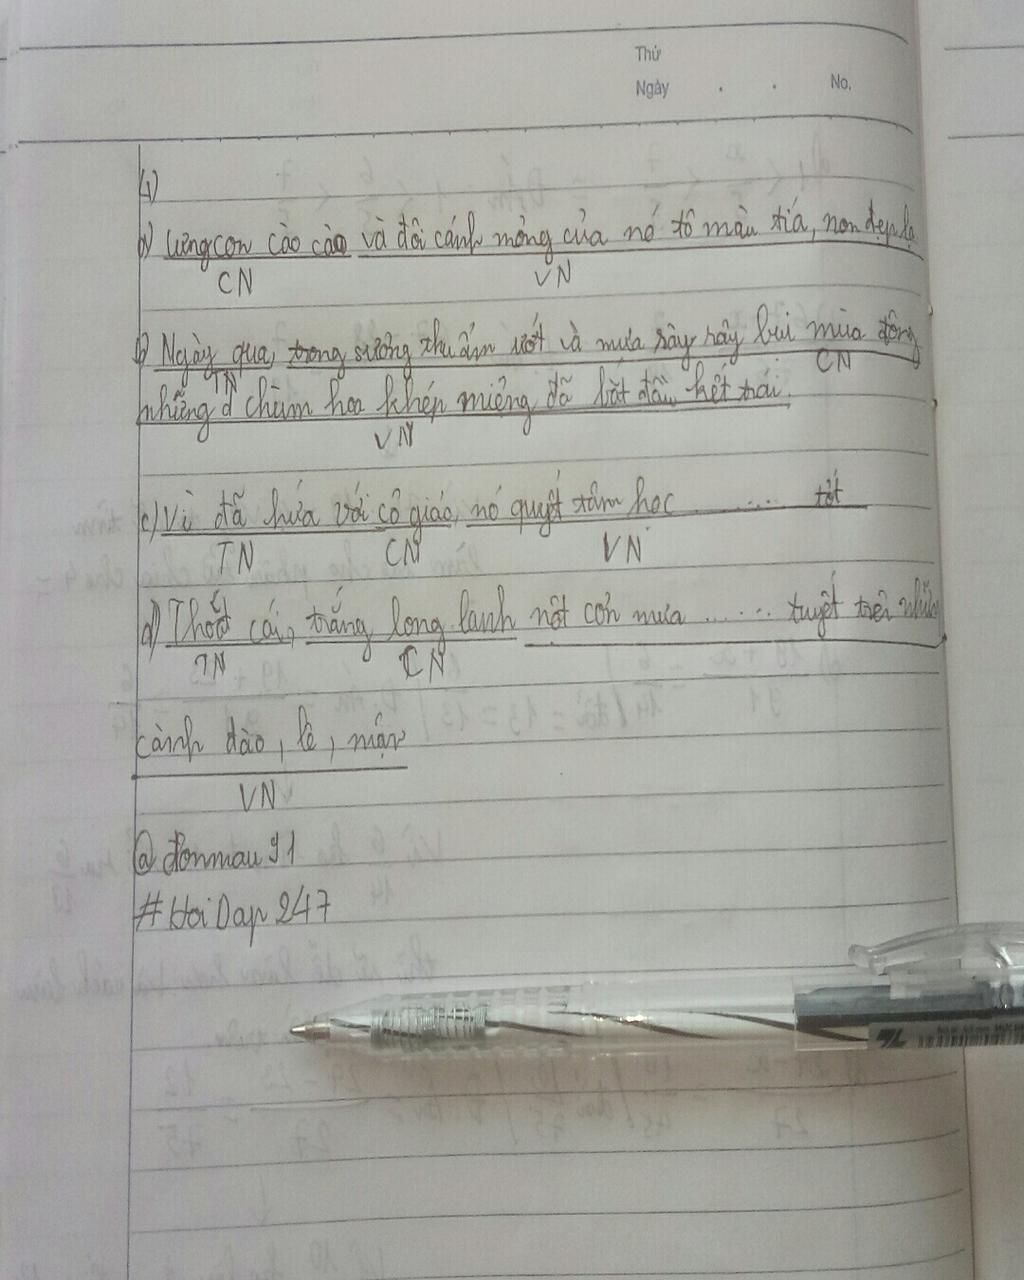 Thứ
Ngày . . No.
4)
a) Lưng con cào cào và đôi cánh mỏng của nó tô màu tía, non đẹp lạ
CN VN
b) Ngày qua, trong sương thu ẩm ướt và mưa rây rây bụi mùa đông
TN CN
những chùm hoa khép miệng đã bắt đầu kết trái.
VN
c) Vì đã hứa với cô giáo, nó quyết tâm học ........ tốt
TN CN VN
d) Thoắt cái, trắng long lanh một cơn mưa ...... tuyết trên những
TN CN
cành đào, lê, mận
VN
@ donmau91
#HoiDap247